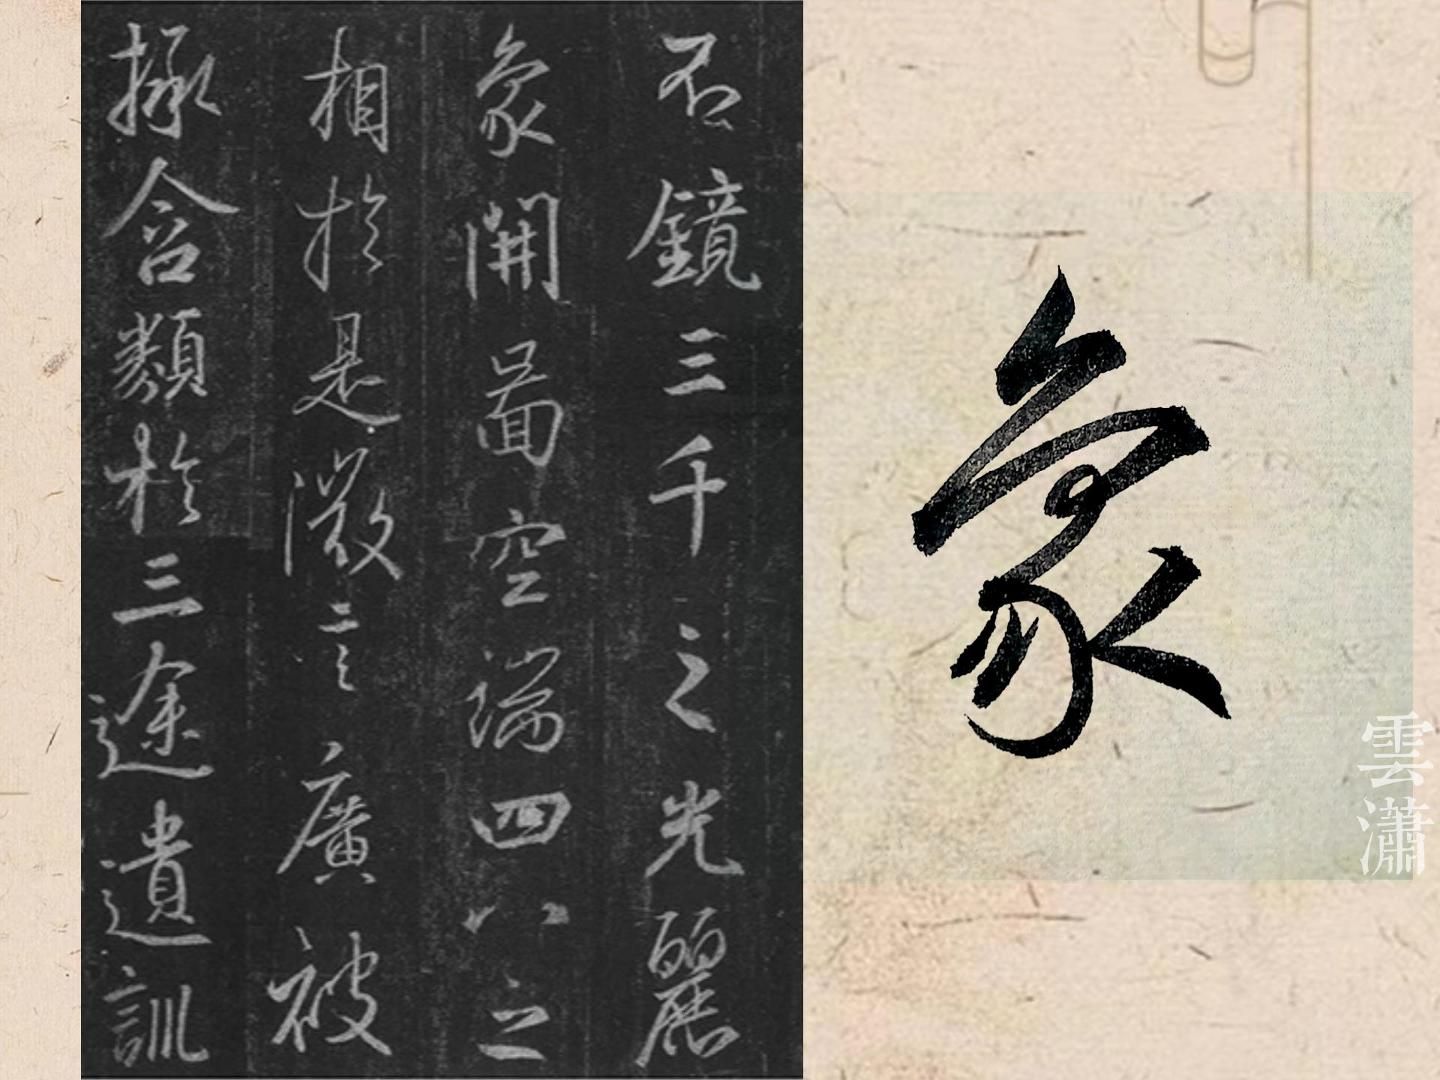 不鏡三千之光麗
象開圖空端四八之
相於是微言廣被
拯含類於三途遺訓
象
雲瀟